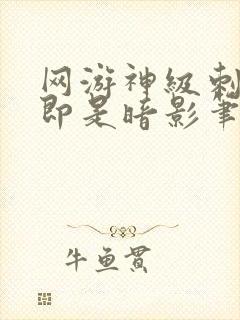 网游神级刺
即是暗影笔
牛鱼贯